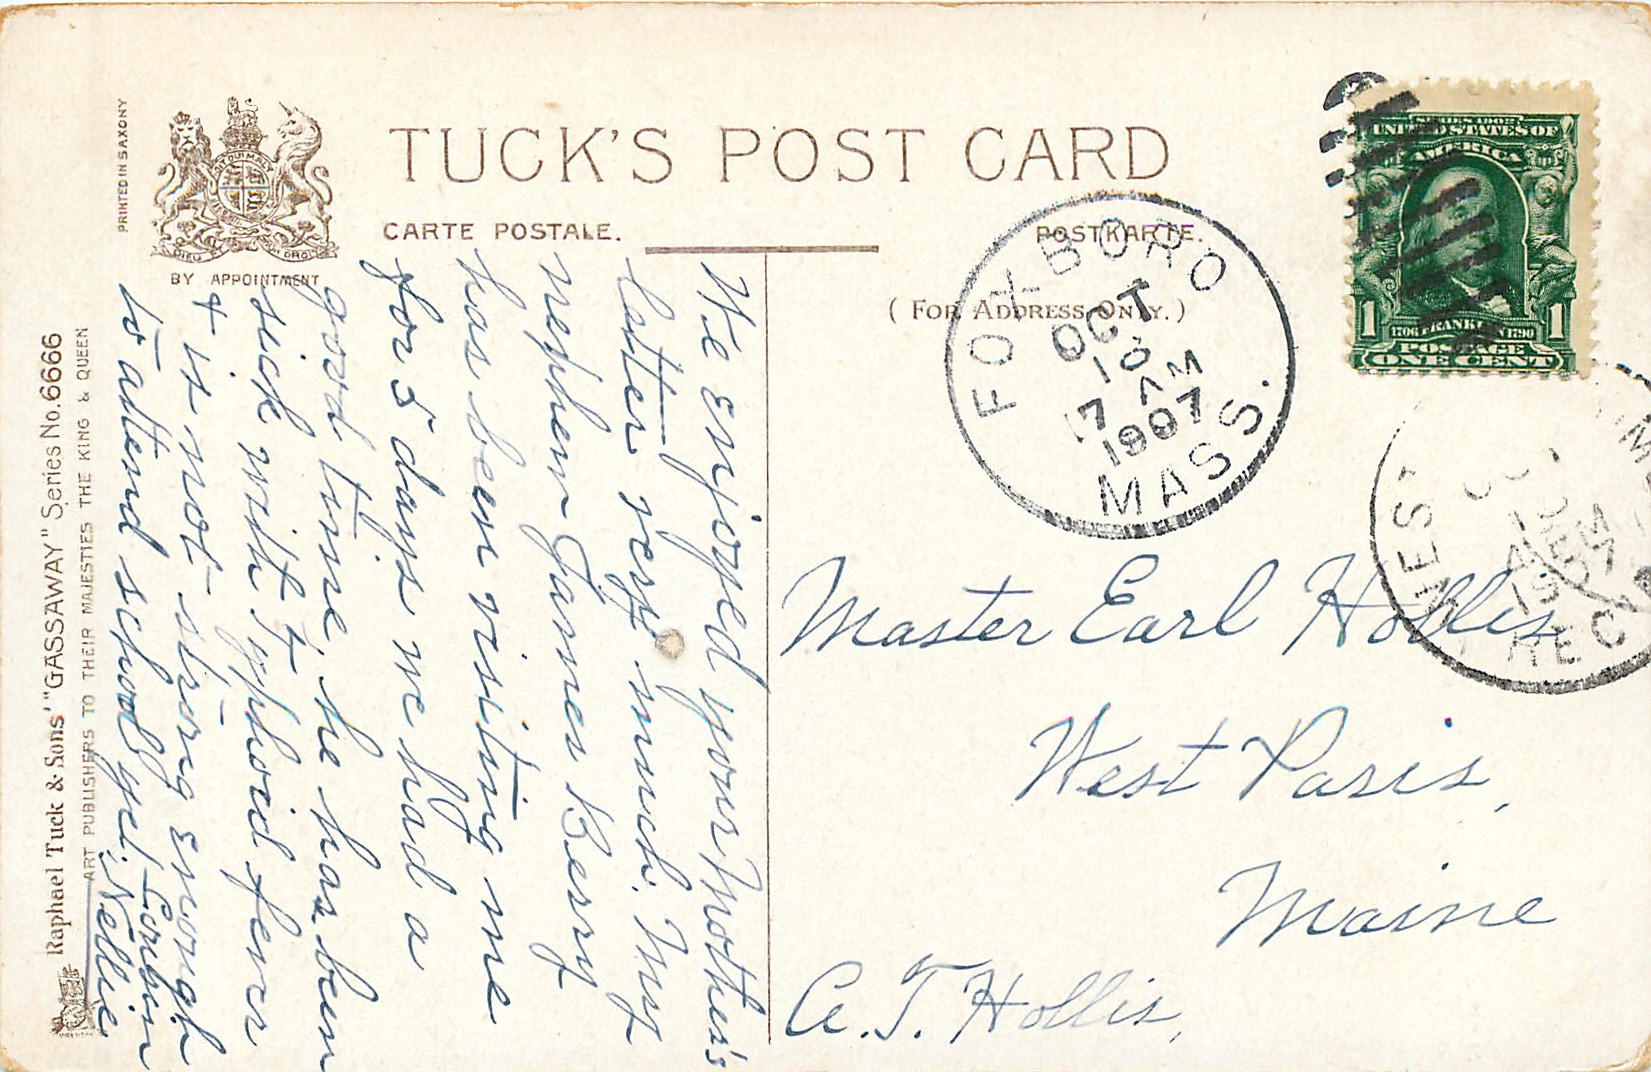 TUCK'S POST CARD
CARTE POSTALE.
POSTKARTE.
(FOR ADDRESS ONLY.)
PRINTED IN SAXONY
DIEU ET MON DROIT
BY APPOINTMENT
Raphael Tuck & Sons' "GASSAWAY" Series No. 6666
ART PUBLISHERS TO THEIR MAJESTIES THE KING & QUEEN
We enjoyed your Mother's
letter very much. My
nephew James Berry
has been visiting me
for 5 days we had a
good time, he has been
sick with typhoid fever
& is not strong enough
to attend school yet.
Cousin
Nellie
FOXBORO
OCT
7 AM
1907
MASS.
SERIES 1902
UNITED STATES OF
AMERICA
1 1706 FRANKLIN 1790 1
POSTAGE
ONE CENT
WEST
1907
REC
Master Earl Hollis
West Paris,
Maine
A. T. Hollis,